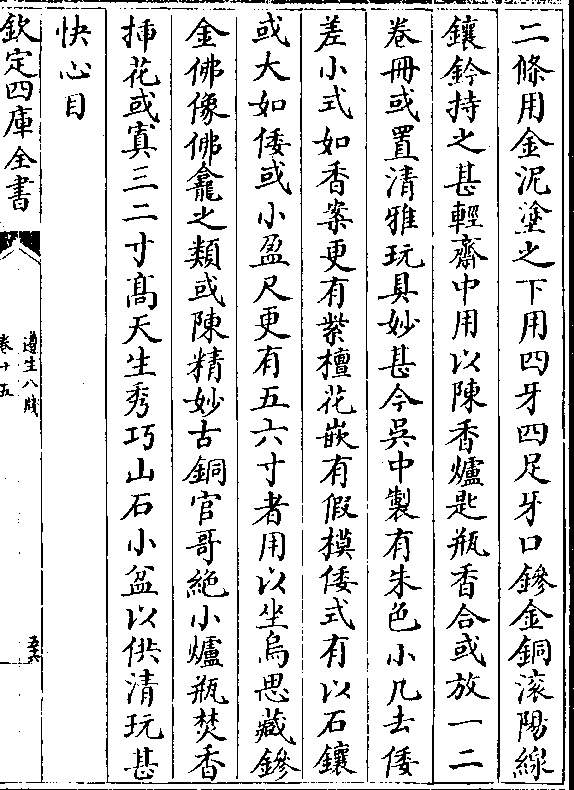 二條用金泥塗之下用四牙四足牙口鏒金銅滚陽線
鑲鈐持之甚輕齋中用以陳香爐匙瓶香合或放一二
卷冊或置清雅玩具妙甚今吳中製有朱色小几去倭
差小式如香案更有紫檀花嵌有假模倭式有以石鑲
或大如倭或小盈尺更有五六寸者用以坐烏思藏鏒
金佛像佛龕之類或陳精妙古銅官哥絶小爐瓶焚香
挿花或寘三二寸高天生秀巧山石小盆以供清玩甚
快心目
欽定四庫全書
遵生八牋
卷十五